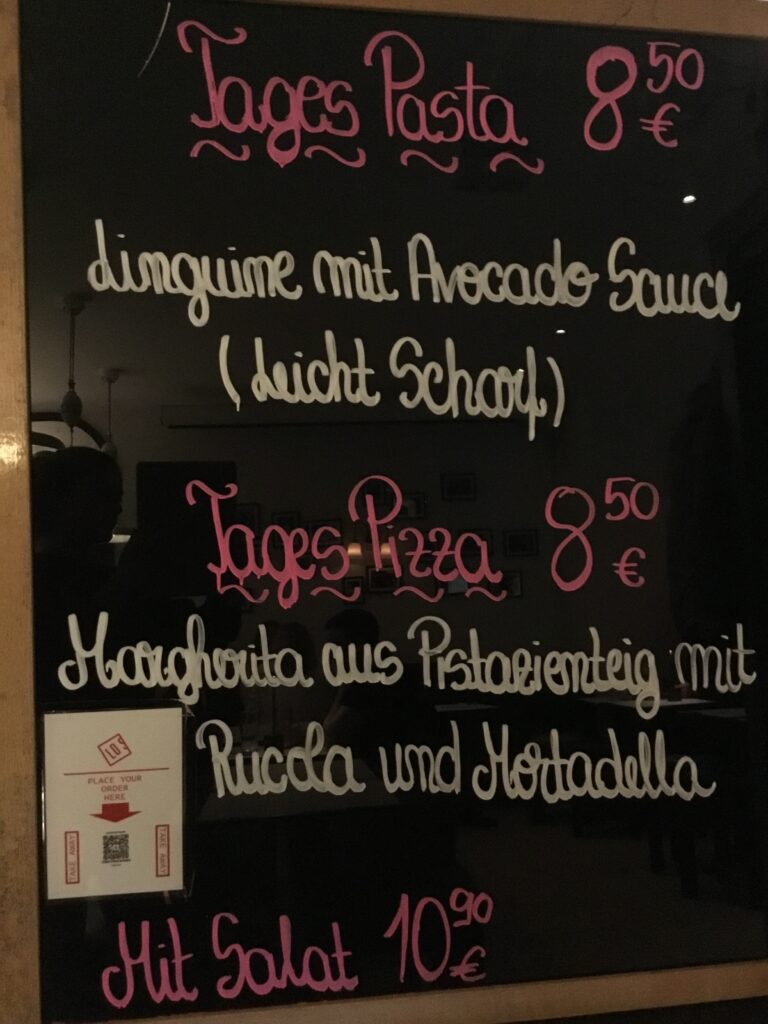 Tages Pasta 8,50 €
Linguine mit Avocado Sauce
(Leicht Scharf)
Tages Pizza 8,50 €
Margherita aus Pistazienteig mit
Rucola und Mortadella
LOS
PLACE YOUR
ORDER
HERE
TAKE AWAY
TAKE AWAY
Mit Salat 10,90 €